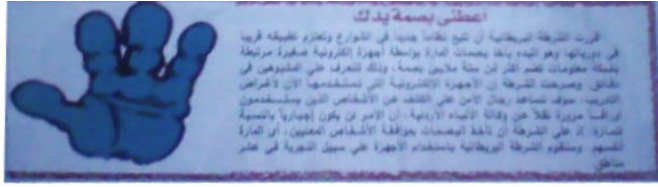 اعطني بصمة يدك
قررت الشرطة البريطانية أن تتبع نظاماً جديداً في الشوارع وتعتزم تطبيقه قريباً
في دورياتها وهو البدء بأخذ بصمات المارة بواسطة أجهزة إلكترونية صغيرة مرتبطة
بشبكة معلومات تضم أكثر من ستة ملايين بصمة، وذلك للتعرف على المشبوهين في
دقائق. وصرحت الشرطة إن الأجهزة الالكترونية التي تستخدمها الآن لأغراض
التدريب، سوف تساعد رجال الأمن على الكشف عن الأشخاص الذين يستخدمون
أوراقاً مزورة نقلاً عن وكالة الأنباء الأردنية. أن الأمر لن يكون إجبارياً بالنسبة
للمارة، إذ على الشرطة أن تأخذ البصمات بموافقة الأشخاص المعنيين، أي المارة
أنفسهم. وستقوم الشرطة البريطانية باستخدام الأجهزة على سبيل التجربة في عشر
مناطق.